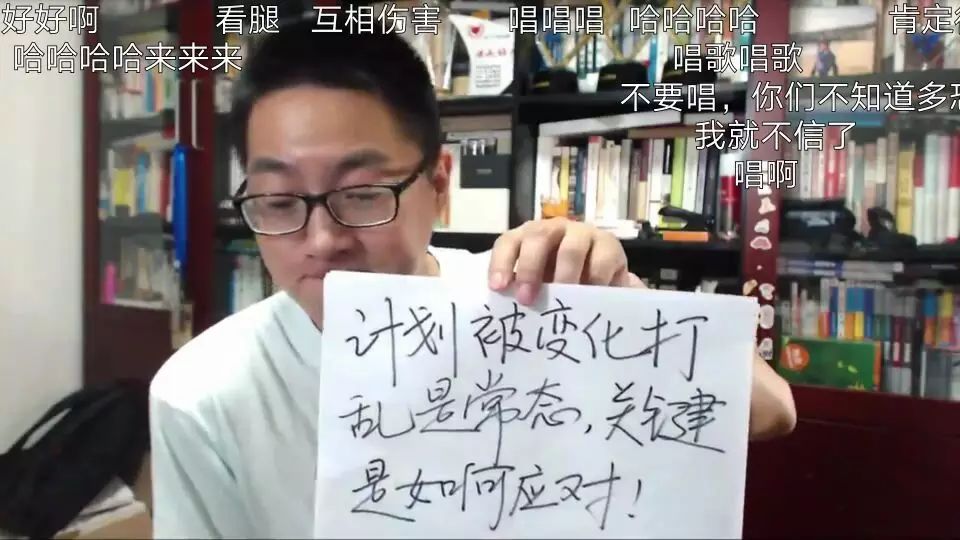 好好啊 看腿 互相伤害 唱唱唱 哈哈哈哈 肯定很
哈哈哈哈来来来 唱歌唱歌
不要唱，你们不知道多恐
我就不信了
唱啊
计划被变化打
乱是常态,关键
是如何应对!